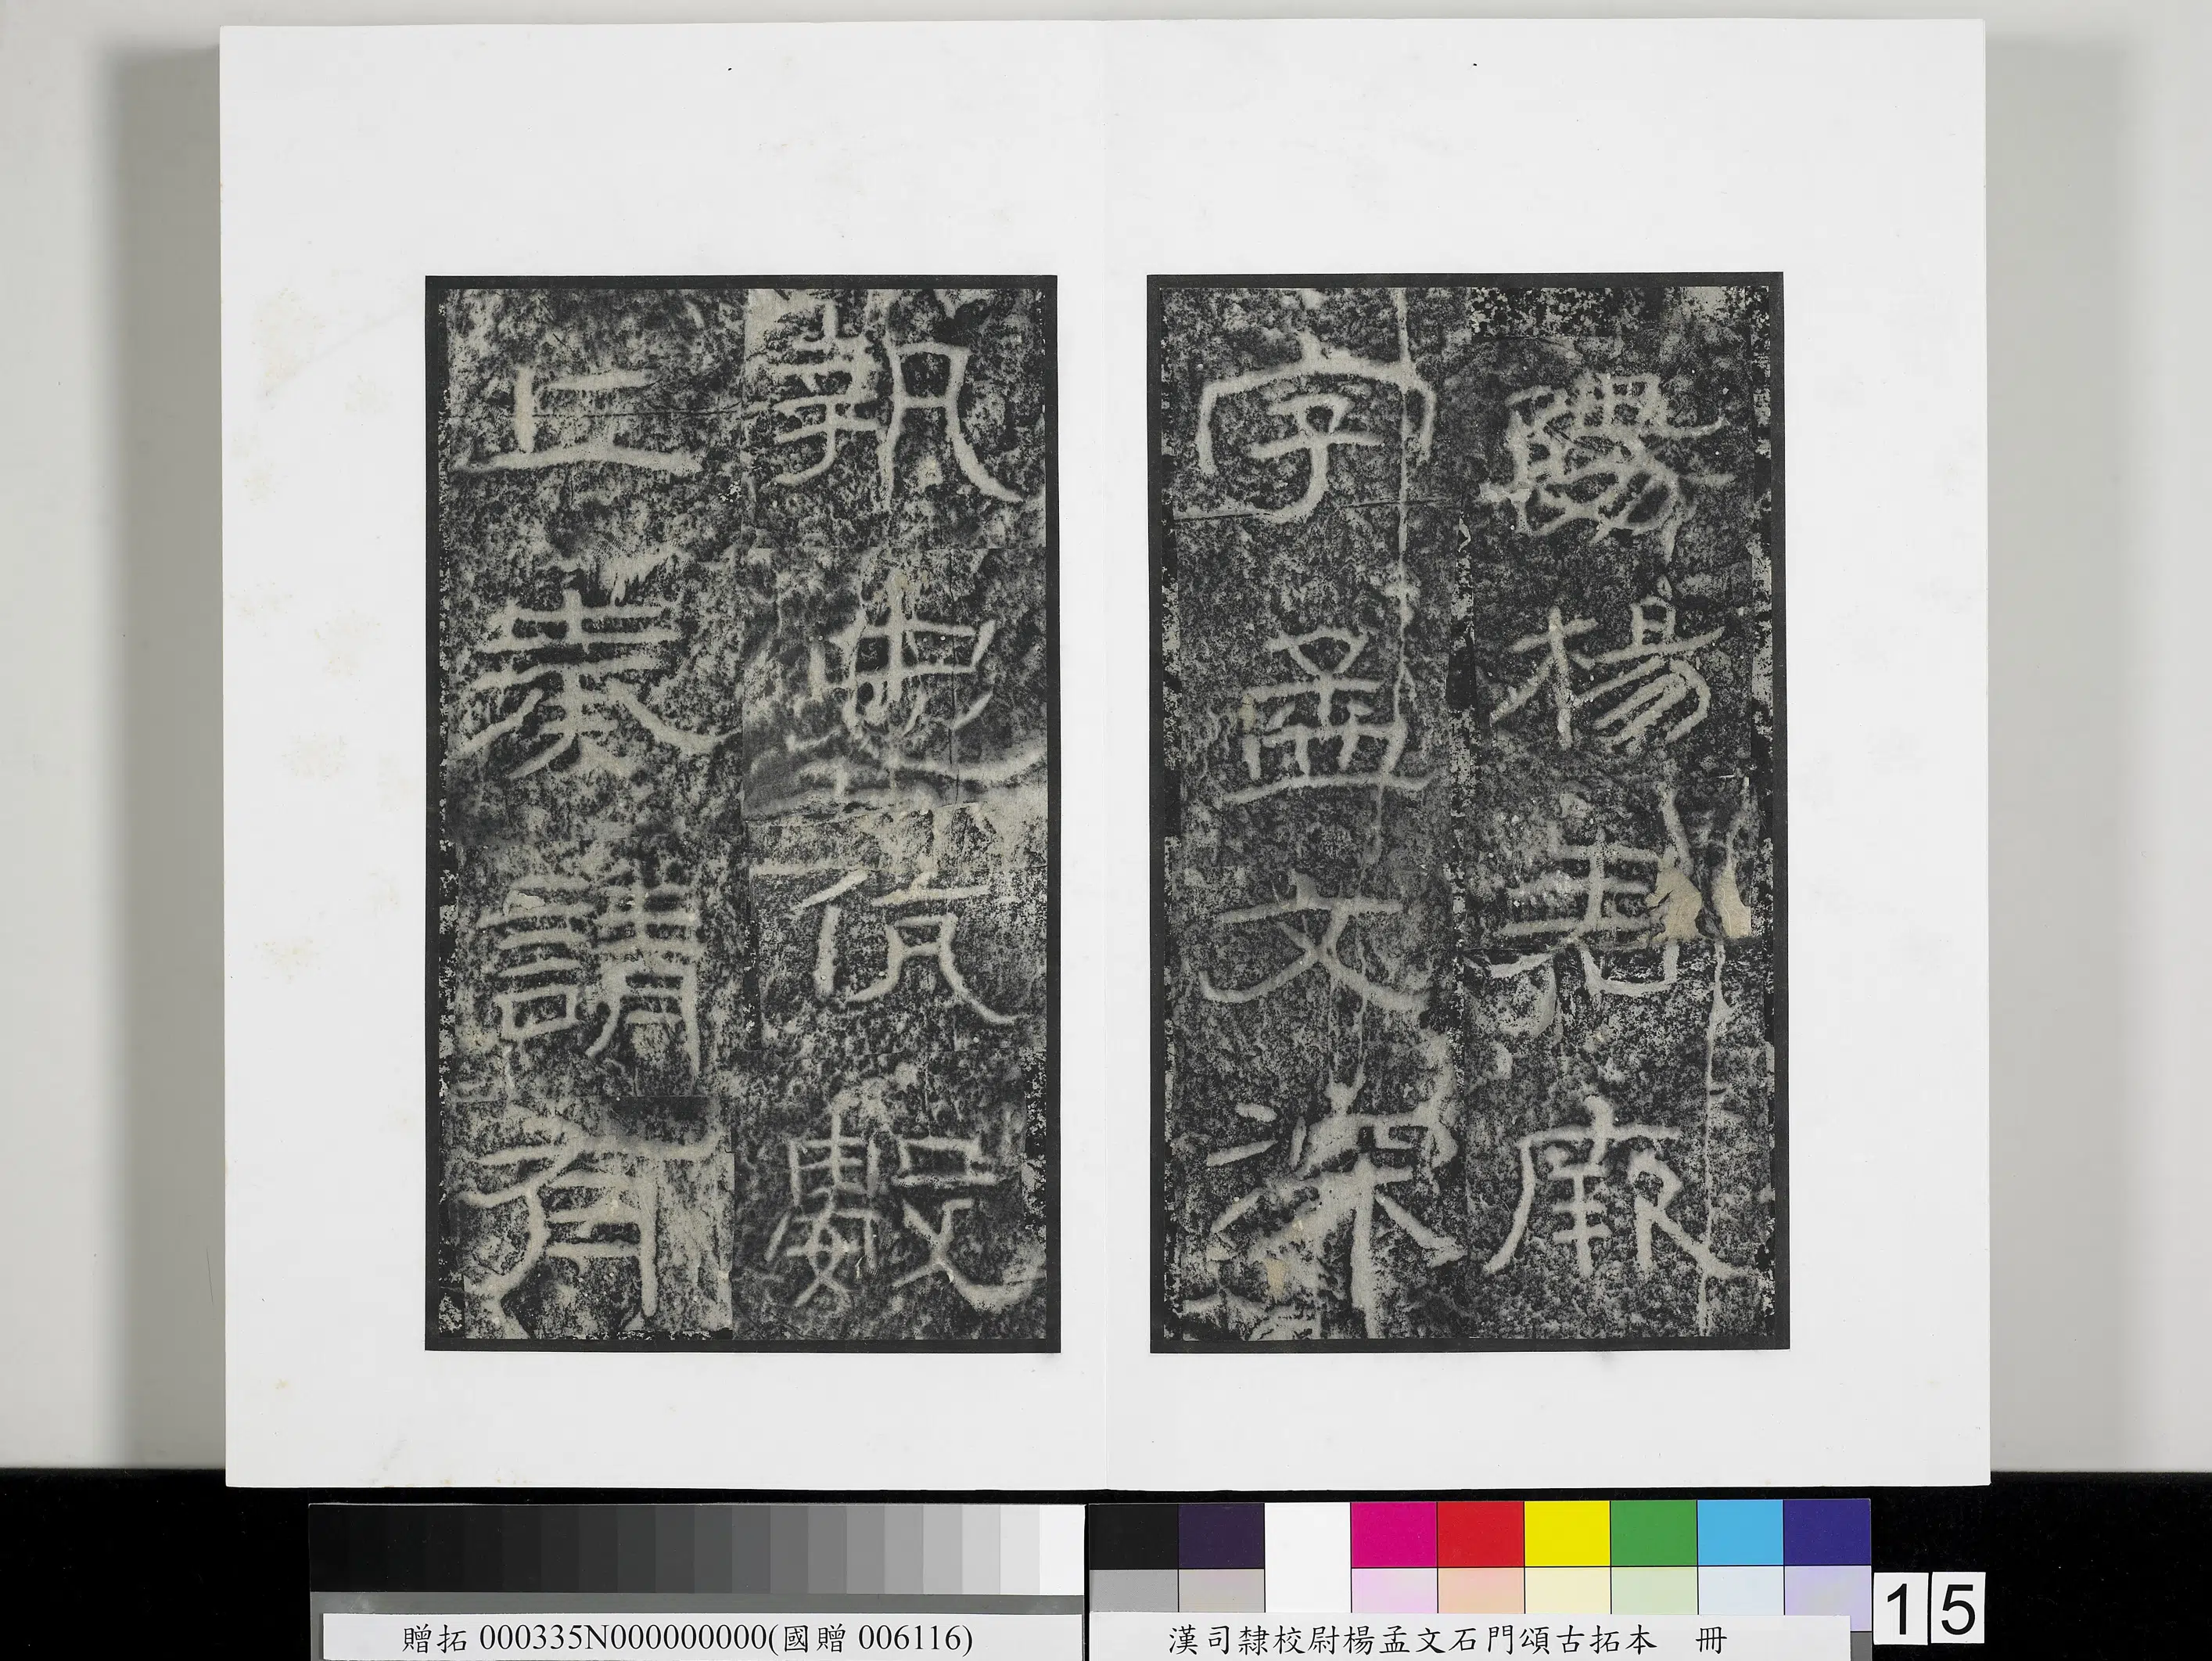 陽楊君厥
字孟文深
執忠伉數
上奏請有
贈拓 000335N000000000(國贈 006116)
漢司隸校尉楊孟文石門頌古拓本　冊
15